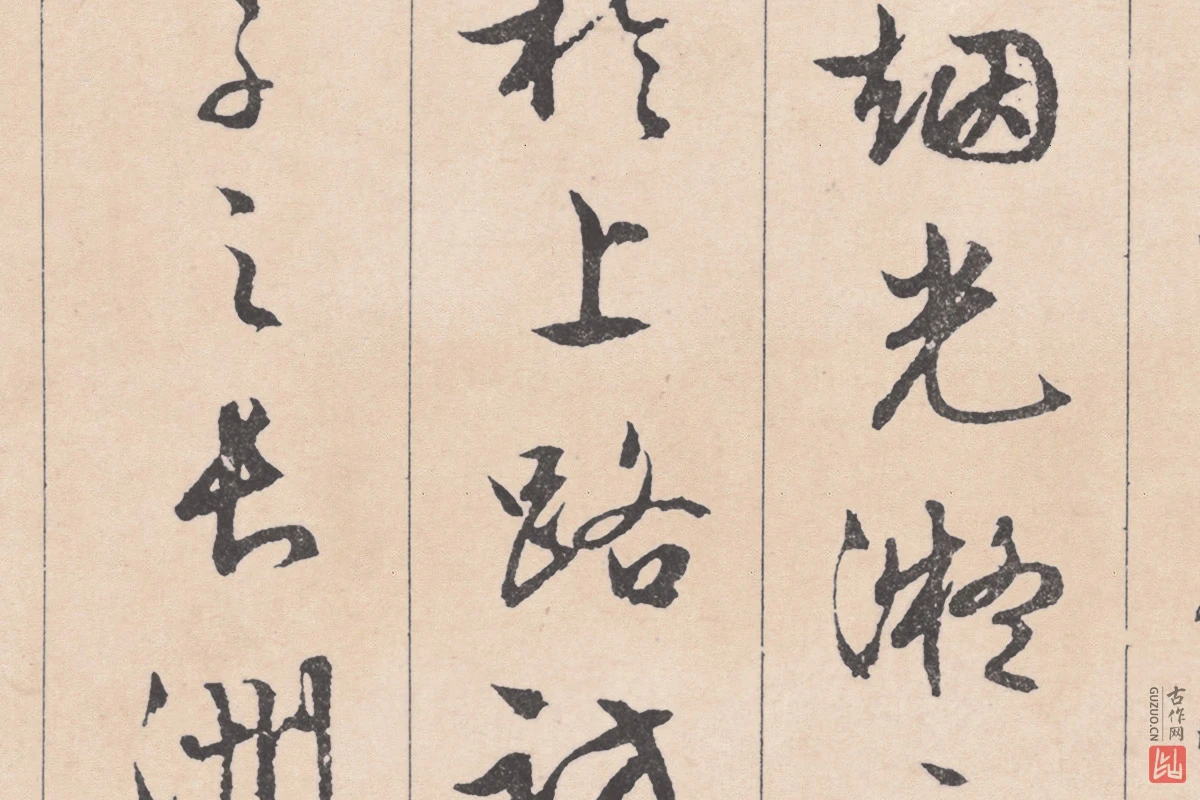 烟光凝
於上路訪
子之長洲
古作网
GUZUO.CN